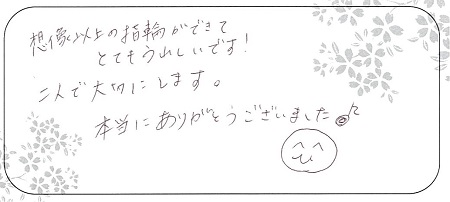 想像以上の指輪ができて
とてもうれしいです!
二人で大切にします。
本当にありがとうございました♪